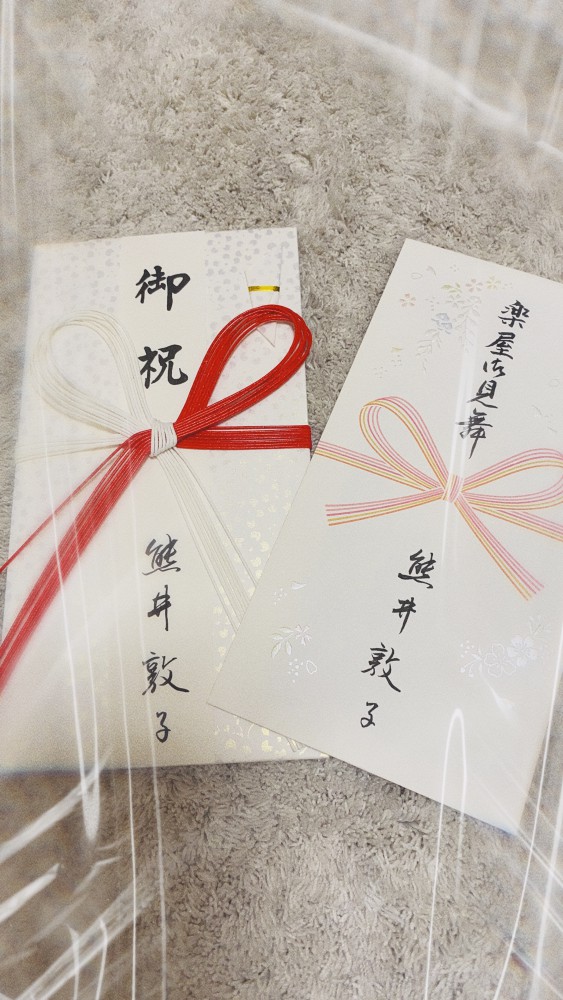 御祝
熊井敦子
楽屋御見舞
熊井敦子